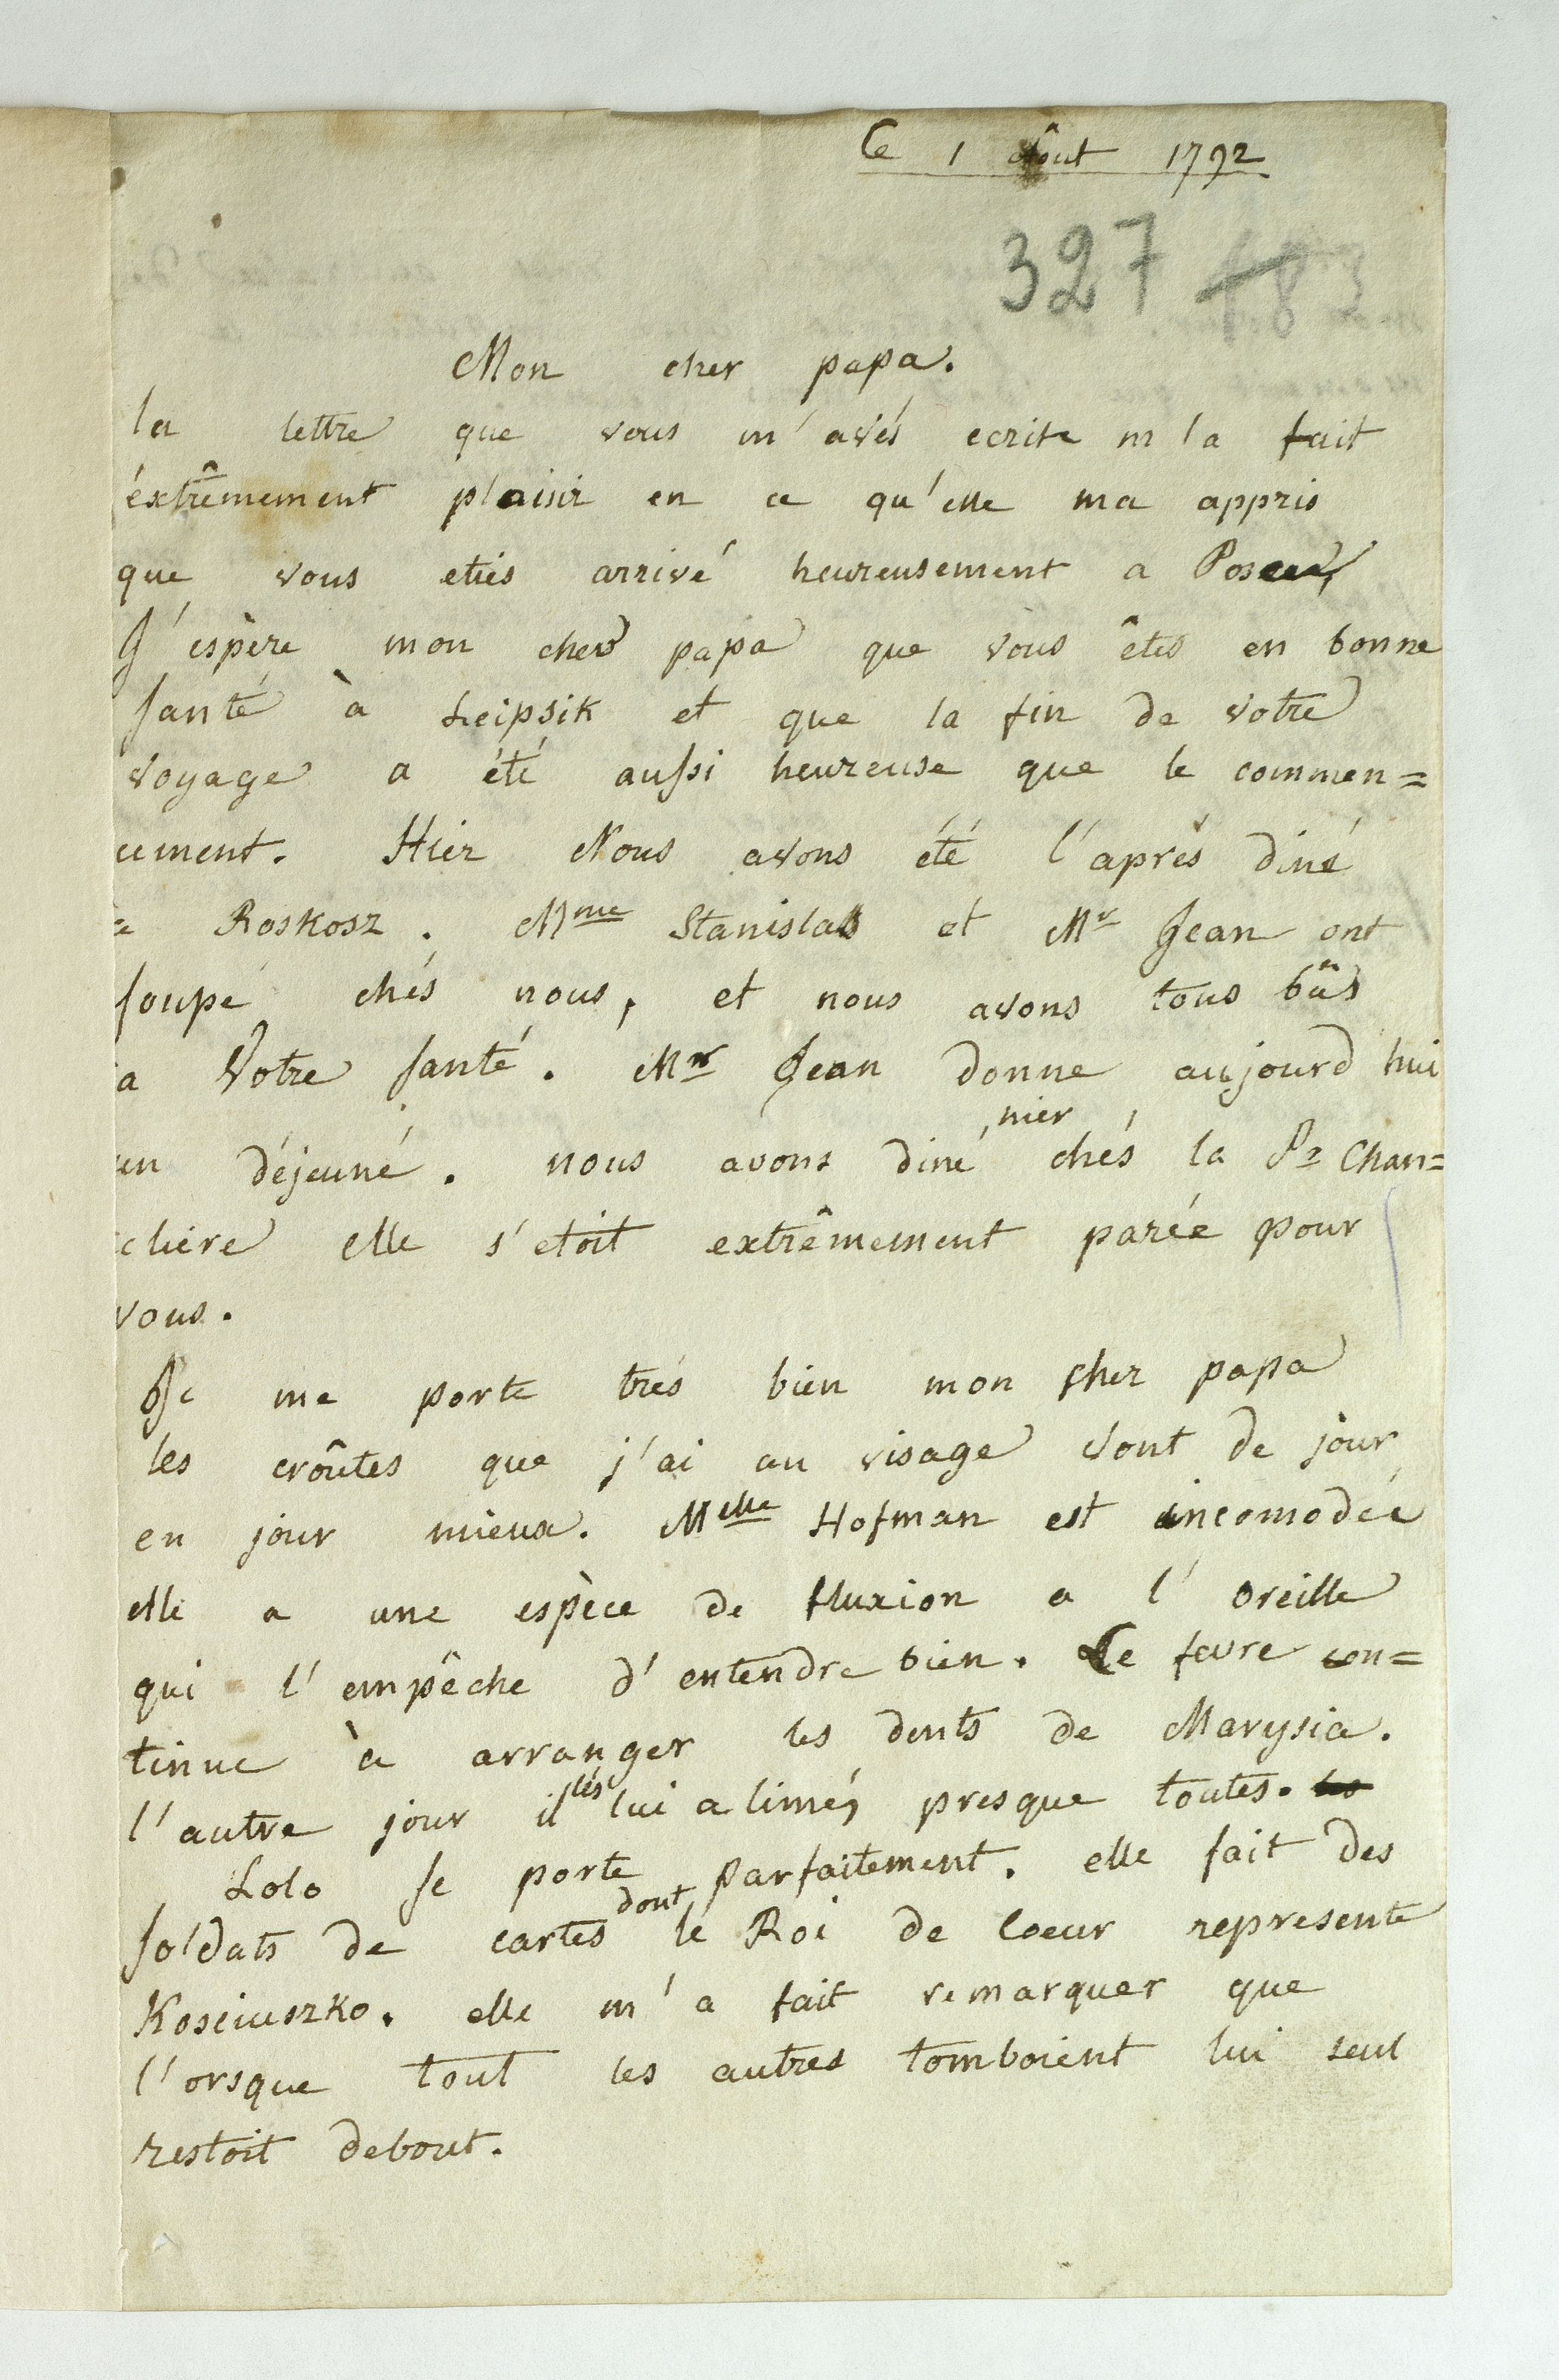 Ce 1 Aôut 1792
327 483
Mon cher papa.
la lettre que vous m'avés ecrite m la fait
éxtrêmement plaisir en ce qu'elle ma appris
que vous etiés arrivé heureusement a Posen,
J'espère mon cher papa que vous êtes en bonne
santé à Leipsik et que la fin de votre
voyage a été aussi heureuse que le commen=
cement. Hier Nous avons été l'après diné
a Roskosz. Mme Stanislas et Mr Jean ont
soupé chés nous, et nous avons tous bûs
a Votre santé. Mr Jean donne aujourd hui
un déjeuné. nous avons diné hier chés la Pr Chan=
cliére elle s'etoit extrêmement parée pour
vous.
Je me porte trés bien mon cher papa
les croûtes que j'ai au visage vont de jour
en jour mieux. Melle Hofman est incomodée
elle a une espèce de fluxion a l'oreille
qui l'empêche d'entendre bien. Le fevre con=
tinue à arranger les dents de Marysia.
l'autre jour il lés lui a limés presque toutes.
Lolo se porte parfaitement. elle fait des
soldats de cartes dont le Roi de Coeur represente
Kosciuszko. elle m'a fait remarquer que
l'orsque tout les autres tomboient lui seul
restoit debout.